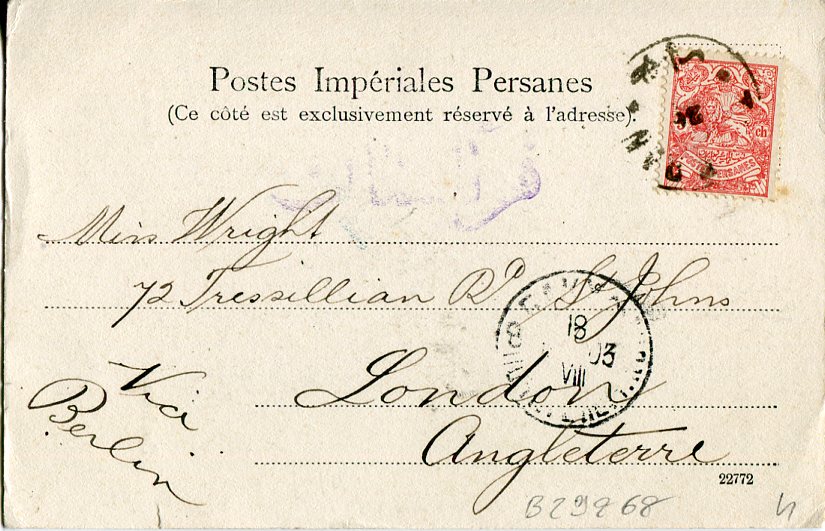 Postes Impériales Persanes
(Ce côté est exclusivement réservé à l'adresse).
5 ch
POSTES PERSANES
Miss Wright
72 Tressillian Rd St Johns
18
03
VIII
London
Angleterre
Via
Berlin
22772
B29868